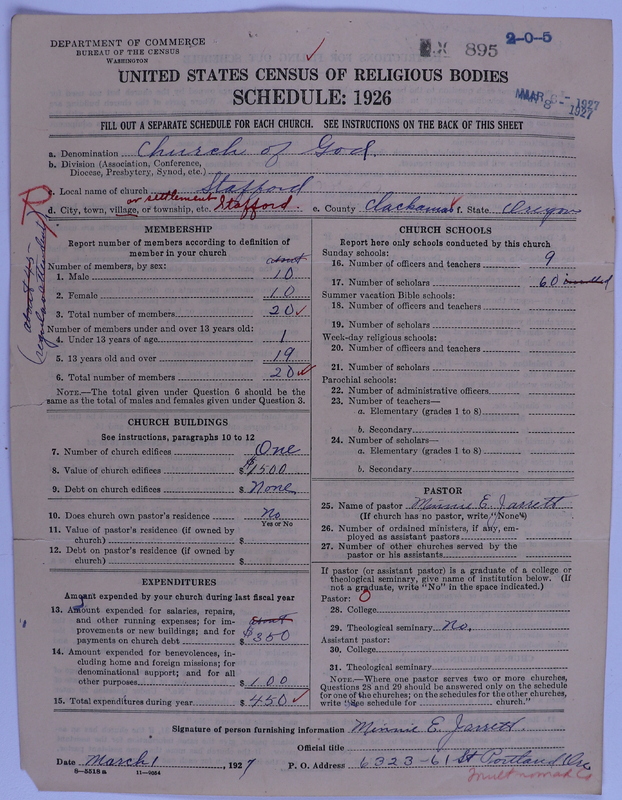 DEPARTMENT OF COMMERCE
BUREAU OF THE CENSUS
WASHINGTON
IX 895
2-0-5
UNITED STATES CENSUS OF RELIGIOUS BODIES
SCHEDULE: 1926
MAR 8 - 1927
1927
FILL OUT A SEPARATE SCHEDULE FOR EACH CHURCH. SEE INSTRUCTIONS ON THE BACK OF THIS SHEET
a. Denomination Church of God.
b. Division (Association, Conference, Diocese, Presbytery, Synod, etc.)
c. Local name of church Stafford
or settlement
d. City, town, village, or township, etc. Stafford. e. County Clackamas f. State Oregon
R
(about 45
regular attendents)
MEMBERSHIP
Report number of members according to definition of
member in your church
Number of members, by sex: about
1. Male 10
2. Female 10
3. Total number of members 20
Number of members under and over 13 years old:
4. Under 13 years of age 1
5. 13 years old and over 19
6. Total number of members 20
NOTE.—The total given under Question 6 should be
same as the total of males and females given under Question 3.
CHURCH BUILDINGS
See instructions, paragraphs 10 to 12
7. Number of church edifices One
8. Value of church edifices $1500
9. Debt on church edifices $ None
10. Does church own pastor's residence No
Yes or No
11. Value of pastor's residence (if owned by
church) $
12. Debt on pastor's residence (if owned by
church) $
EXPENDITURES
Amount expended by your church during last fiscal year
13. Amount expended for salaries, repairs,
and other running expenses; for im- about
provements or new buildings; and for
payments on church debt $350
14. Amount expended for benevolences, in-
cluding home and foreign missions; for
denominational support; and for all
other purposes $100
15. Total expenditures during year $450
CHURCH SCHOOLS
Report here only schools conducted by this church
Sunday schools:
16. Number of officers and teachers 9
17. Number of scholars 60 enrolled
Summer vacation Bible schools:
18. Number of officers and teachers
19. Number of scholars
Week-day religious schools:
20. Number of officers and teachers
21. Number of scholars
Parochial schools:
22. Number of administrative officers
23. Number of teachers—
a. Elementary (grades 1 to 8)
b. Secondary
24. Number of scholars—
a. Elementary (grades 1 to 8)
b. Secondary
PASTOR
25. Name of pastor Minnie E. Jarrett
(If church has no pastor, write "None")
26. Number of ordained ministers, if any, em-
ployed as assistant pastors
27. Number of other churches served by the
pastor or his assistants
If pastor (or assistant pastor) is a graduate of a college or
theological seminary, give name of institution below. (If
not a graduate, write "No" in the space indicated.)
Pastor: 0
28. College
29. Theological seminary No.
Assistant pastor:
30. College
31. Theological seminary
NOTE.—Where one pastor serves two or more churches,
Questions 28 and 29 should be answered only on the schedule
for one of the churches; on the schedules for the other churches,
write "See schedule for church."
Signature of person furnishing information Minnie E. Jarrett.
Official title
Date March 1, 1927 P. O. Address 6323-61 St Portland Ore
8-5518a 11-9034
Multnomah Co